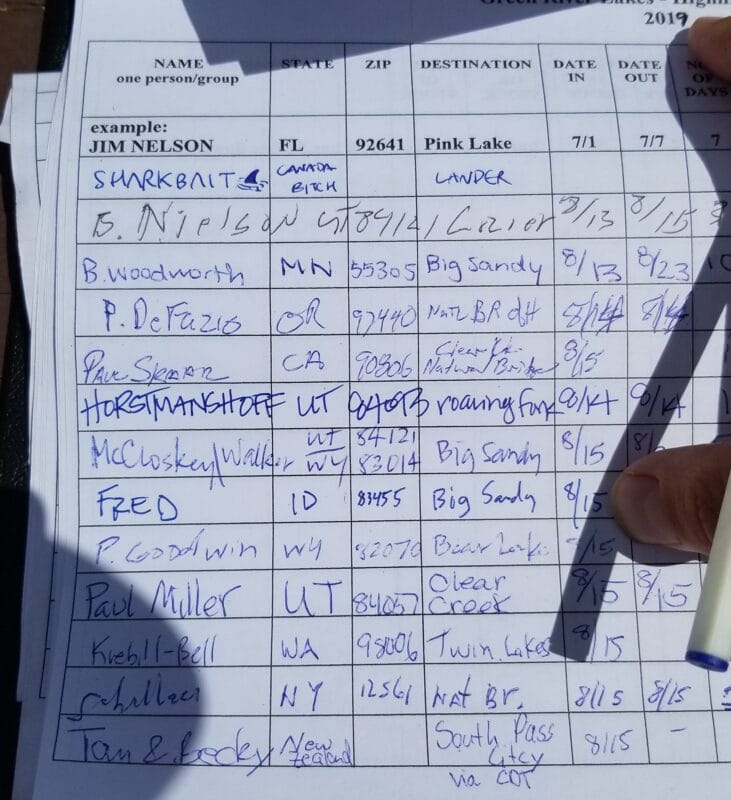 Green River Lakes - High
2019
NAME one person/group STATE ZIP DESTINATION DATE IN DATE OUT NO OF DAYS
example: JIM NELSON FL 92641 Pink Lake 7/1 7/7 7
SHARKBAIT CANADA BITCH LANDER
B. Nielson UT 84121 8/13 8/15
B. Woodworth MN 55305 Big Sandy 8/13 8/23 10
P. DeFazio OR 97440 Natl BR dH 8/14 8/14
Paul CA 90806 Clear Natural Bridge 8/15
HORSTMANSHOFF UT 84093 roaring fork 8/14 8/14 1
McCloskey/Walker UT WY 84121 83014 Big Sandy 8/15 8/
FRED ID 83455 Big Sandy 8/15
P. Goodwin WY 82070 Bear Lake 8/15
Paul Miller UT 84057 Clear Creek 8/15 8/15
Krebill-Bell WA 98006 Twin Lakes 8/15
NY 12561 NAT BR. 8/15 8/15
Tan & Becky New Zealand South Pass City via CDT 8/15 -